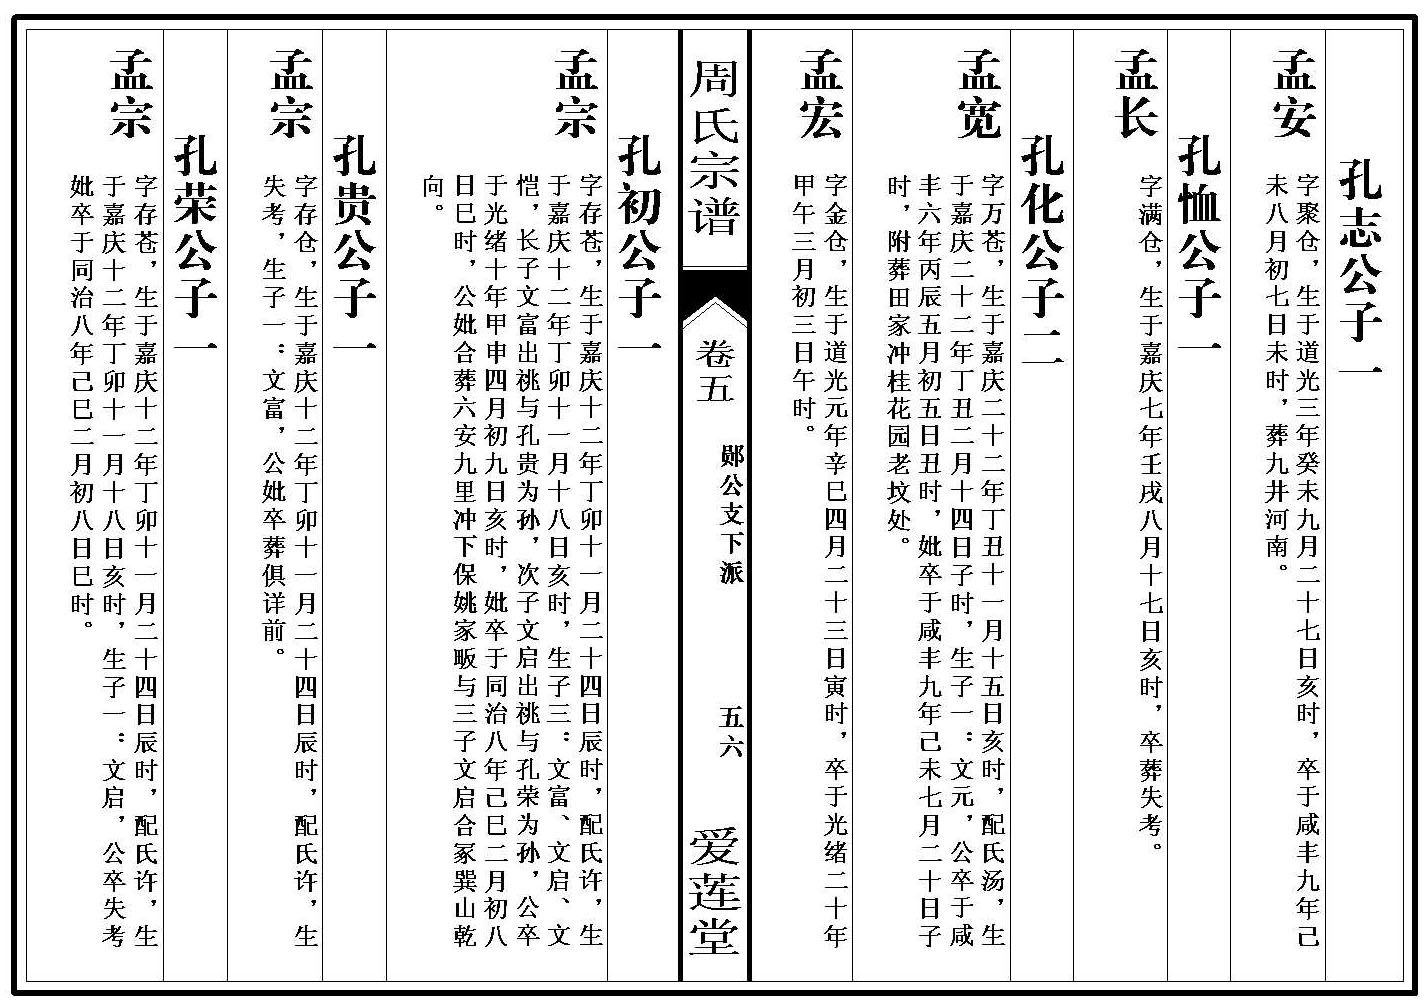 孔志公子一
孟安
字聚仓，生于道光三年癸未九月二十七日亥时，卒于咸丰九年己
未八月初七日未时，葬九井河南。
孔恤公子一
孟长
字满仓，生于嘉庆七年壬戌八月十七日亥时，卒葬失考。
孔化公子二
孟宽
字万苍，生于嘉庆二十二年丁丑十一月十五日亥时，配氏汤，生
于嘉庆二十二年丁丑二月十四日子时，生子一：文元，公卒于咸
丰六年丙辰五月初五日丑时，妣卒于咸丰九年己未七月二十日子
时，附葬田家冲桂花园老坟处。
孟宏
字金仓，生于道光元年辛巳四月二十三日寅时，卒于光绪二十年
甲午三月初三日午时。
周氏宗谱
卷五
郧公支下派
五六
爱莲堂
孔初公子一
孟宗
字存苍，生于嘉庆十二年丁卯十一月二十四日辰时，配氏许，生
于嘉庆十二年丁卯十一月十八日亥时，生子三：文富、文启、文
恺，长子文富出祧与孔贵为孙，次子文启出祧与孔荣为孙，公卒
于光绪十年甲申四月初九日亥时，妣卒于同治八年己巳二月初八
日巳时，公妣合葬六安九里冲下保姚家畈与三子文启合冢巽山乾
向。
孔贵公子一
孟宗
字存仓，生于嘉庆十二年丁卯十一月二十四日辰时，配氏许，生
失考，生子一：文富，公妣卒葬俱详前。
孔荣公子一
孟宗
字存苍，生于嘉庆十二年丁卯十一月二十四日辰时，配氏许，生
于嘉庆十二年丁卯十一月十八日亥时，生子一：文启，公卒失考
妣卒于同治八年己巳二月初八日巳时。